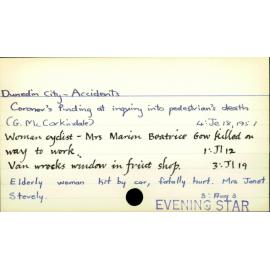 Dunedin City - Accidents
Coroner's finding at inquiry into pedestrian's death
(G. McCorkindale) 4: Je 18, 1951
Woman cyclist - Mrs Marion Beatrice Gow killed on
way to work. 1: Jl 12
Van wrecks window in fruit shop. 3: Jl 19
Elderly woman hit by car, fatally hurt. Mrs Janet
Stevely. 3: Aug 3
EVENING STAR